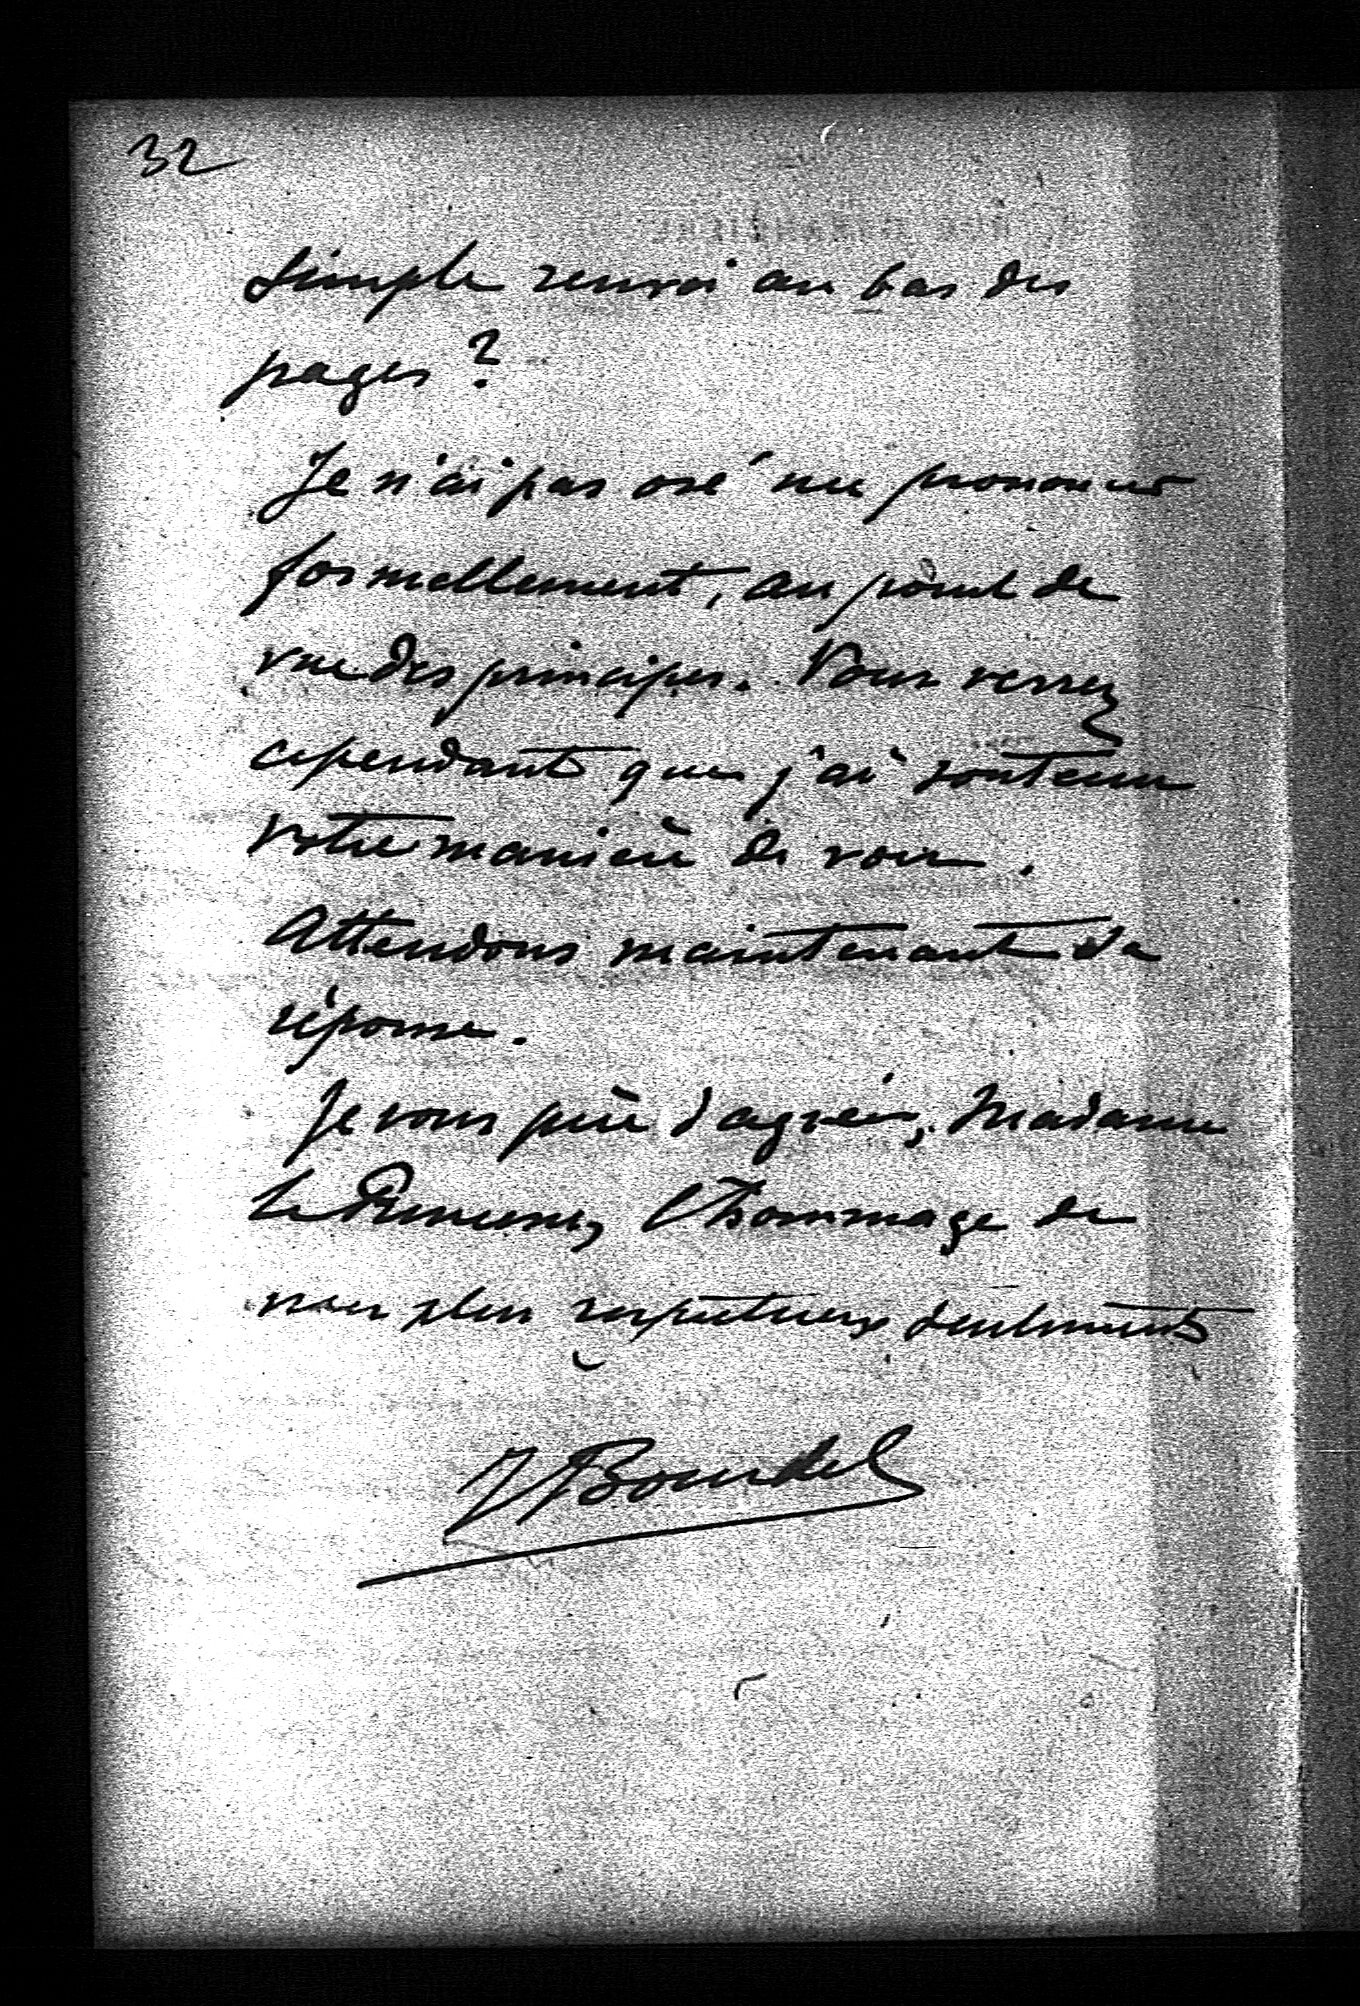 32
simple renvoi au bas des
pages ?
Je n'ai pas osé me prononcer
formellement, au point de
vue des principes. Vous verrez
cependant que j'ai soutenu
votre manière de voir.
Attendons maintenant sa
réponse.
Je vous prie d'agréer, Madame
la l'hommage de
mes plus respectueux sentiments
J Bourdel